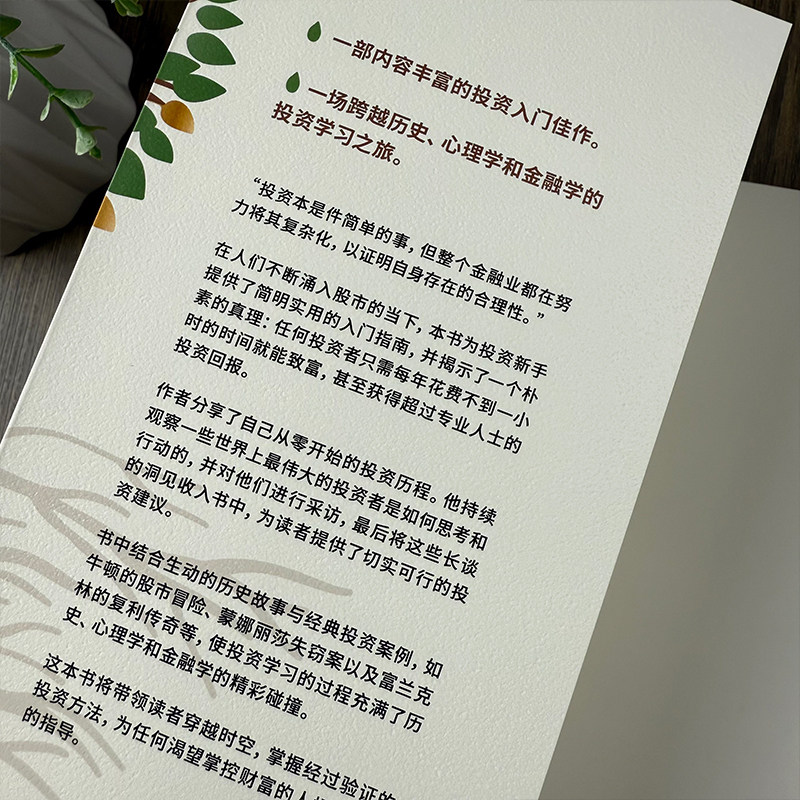 一部内容丰富的投资入门佳作。
一场跨越历史、心理学和金融学的
投资学习之旅。
“投资本是件简单的事，但整个金融业都在努
力将其复杂化，以证明自身存在的合理性。”
在人们不断涌入股市的当下，本书为投资新手
提供了简明实用的入门指南，并揭示了一个朴
素的真理：任何投资者只需每年花费不到一小
时的时间就能致富，甚至获得超过专业人士的
投资回报。
作者分享了自己从零开始的投资历程。他持续
观察一些世界上最伟大的投资者是如何思考和
行动的，并对他们进行采访，最后将这些长谈
的洞见收入书中，为读者提供了切实可行的投
资建议。
书中结合生动的历史故事与经典投资案例，如
牛顿的股市冒险、蒙娜丽莎失窃案以及富兰克
林的复利传奇等，使投资学习的过程充满了历
史、心理学和金融学的精彩碰撞。
这本书将带领读者穿越时空，掌握经过验证的
投资方法，为任何渴望掌控财富的人
的指导。